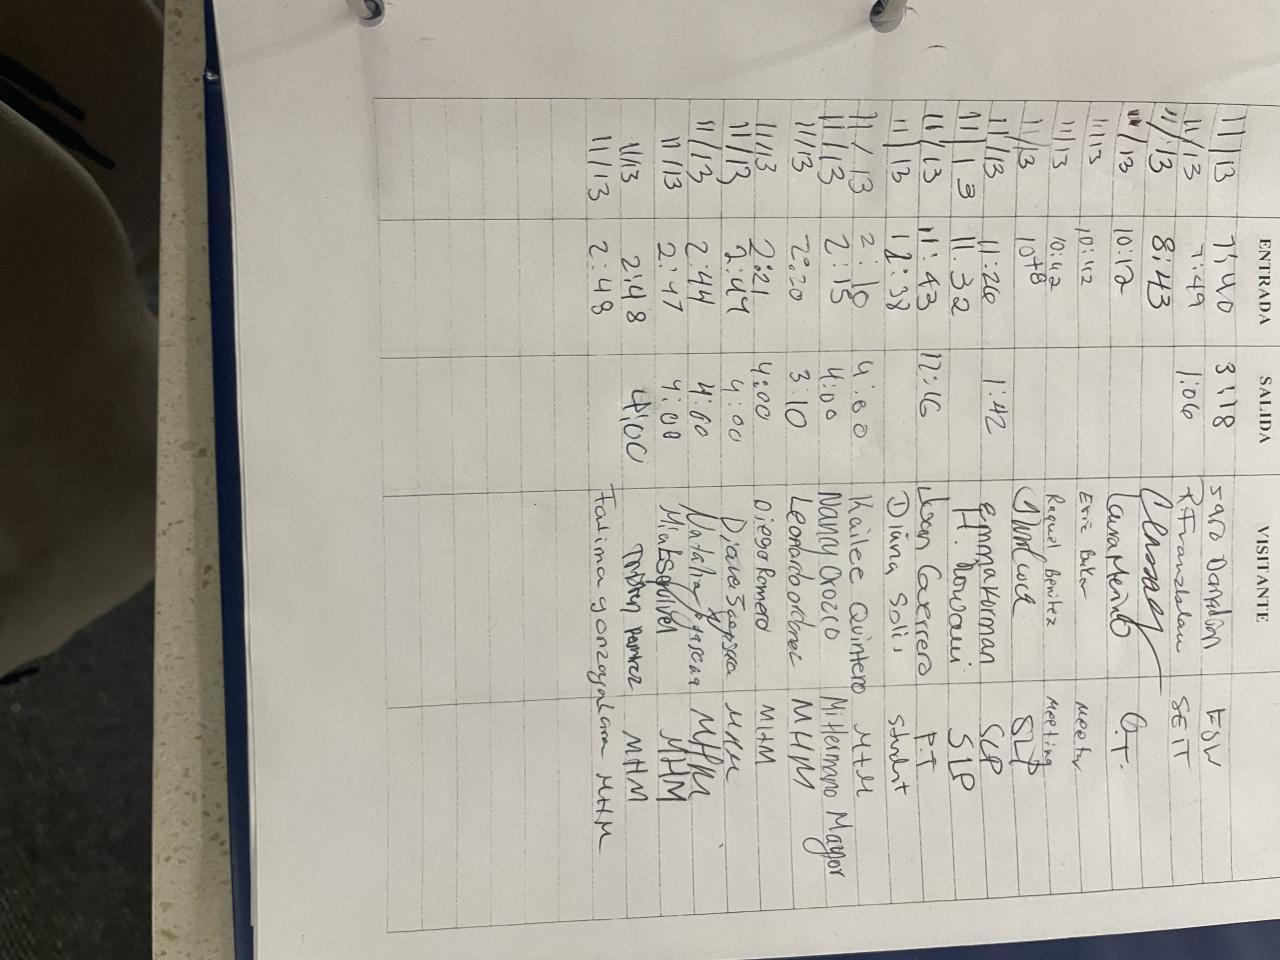 ENTRADA SALIDA VISITANTE
11/13 7:40 3:18 Donaldson FSW
11/13 7:49 1:06 SEIT
11/13 8:43
11/13 10:12 O.T.
11/13 10:42 Eric Meeting
11/13 10:42 Raquel Benitez Meeting
11/13 1048 SLP
11/13 11:26 1:42 emma Korman SLP
11/13 11:32 H. SLP
11/13 11:43 12:16 Juan Guerrero P.T
11/13 12:38 Diana Solis Student
11/13 2:10 4:00 Kailee Quintero MHM
11/13 2:15 4:00 Nancy Orozco Mi Hermano Mayor
11/13 2:20 3:10 Leonardo MHM
11/13 2:21 4:00 Diego Romero MHM
11/13 2:44 4:00 MHM
11/13 2:44 4:00 Natalia MHM
11/13 2:47 4:00 Mia MHM
11/13 2:48 4:00 MHM
11/13 2:48 MHM